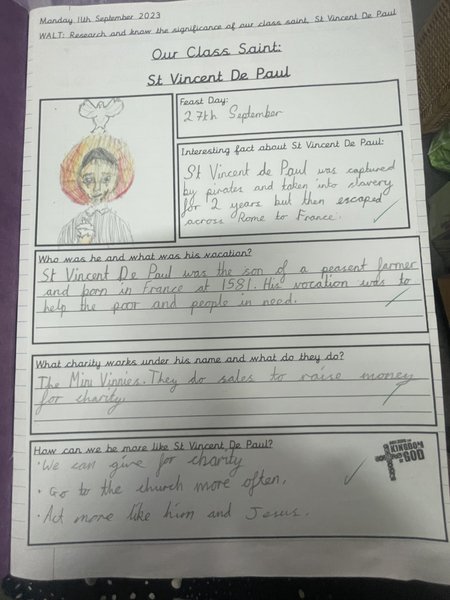 Monday 11th September 2023
WALT: Research and know the significance of our class saint, St Vincent De Paul
Our Class Saint:
St Vincent De Paul
Feast Day:
27th September
Interesting fact about St Vincent De Paul:
St Vincent de Paul was captured
by pirates and taken into slavery
for 2 years but then escaped
across Rome to France.
Who was he and what was his vocation?
St Vincent De Paul was the son of a peasent farmer
and born in France at 1581. His vocation was to
help the poor and people in need.
What charity works under his name and what do they do?
The Mini Vinnies. They do sales to raise money
for charity.
How can we be more like St Vincent De Paul?
• We can give for charity
• Go to the church more often.
• Act more like him and Jesus.
KINGDOM
GOD